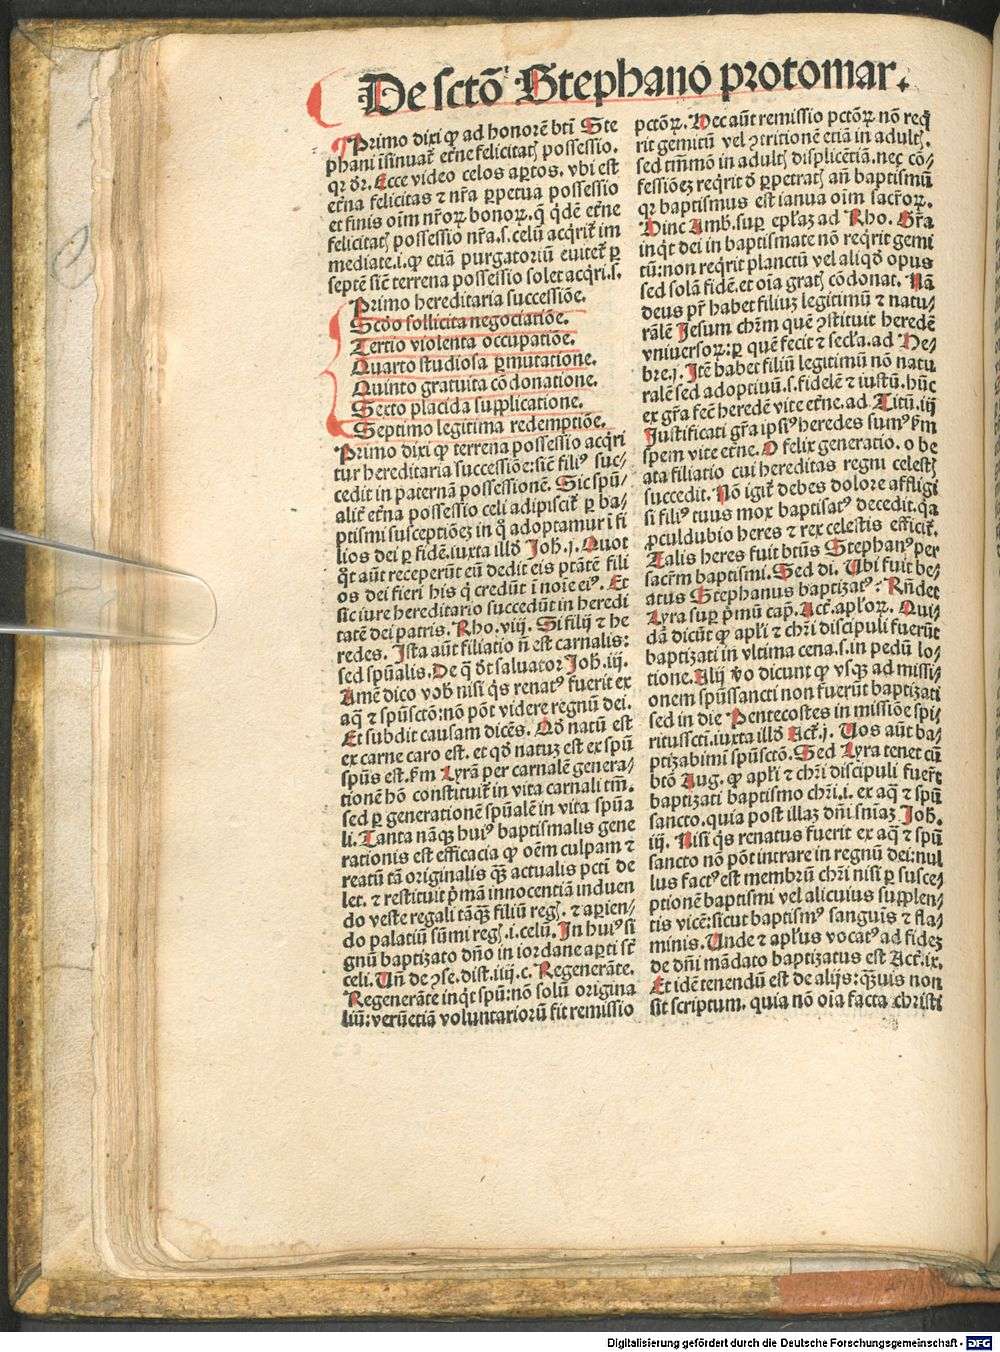 De sctō Stephano protomar.
Primo dixi ꝙ ad honorē bti̅ Ste
phani īsinuat᷒ et̄ne felicitatꝭ possessio.
qꝛ dr̄. Ecce video celos aꝑtos. vbi est
et̄na felicitas ⁊ nr̄a ꝑpetua possessio
et finis oīm nr̄oꝝ bonoꝝ. q̄ qͥdē et̄ne
felicitatꝭ possessio nr̄a .s. celū acqͥrit᷒ im
mediate .i. ꝙ etiā purgatoriū euitet᷒ ꝑ
septē sic̄ terrena possessio solet acqͥri .s.
Primo hereditaria successiōe.
Scd̄o sollicita negociatiōe.
Tertio violenta occupatiōe.
Quarto studiosa ꝑmutatione.
Quinto gratuita cōdonatione.
Sexto placida supplicatione.
Septimo legitima redemptiōe.
Primo dixi ꝙ terrena possessio acqͥri
tur hereditaria successiōe: sic̄ filiꝰ suc⸗
cedit in paternā possessionē. Sic spūa
alit᷒ et̄na possessio celi adipiscit᷒ ꝑ ba⸗
ptismi susceptiōeȝ in qͦ adoptamur ī fi
lios dei ꝑ fidē. iuxta illd̄ Joh̄. j. Quot
qͦt aūt receperūt eū dedit eis ptātē fili
os dei fieri his qͥ credūt ī noīe eiꝰ. Et
sic iure hereditario succedūt in heredi
tatē dei patris. Rho. viij. Si filij ⁊ he
redes. Ista aūt filiatio n̄ est carnalis:
sed spūalis. De q̄ dt̄ saluator Joh̄. iij.
Amē dico vob̄ nisi qͥs renatꝰ fuerit ex
aq̄ ⁊ spūsctō: nō pōt videre regnū dei.
Et subdit causam dicēs. Qd̄ natū est
ex carne caro est. et qd̄ natuȝ est ex spū
spūs est. ẜm Lyrā per carnalē genera⸗
tionē hō constituit᷒ in vita carnali tm̄.
sed ꝑ generationē spūalē in vita spūa
li. Tanta nāqȝ huiꝰ baptismalis gene
rationis est efficacia ꝙ oēm culpam ⁊
reatū tā originalis qȝ actualis pctī de
let. ⁊ restituit pͥmā innocentiā induen
do veste regali tāqȝ filiū regꝭ. ⁊ aꝑien⸗
do palatiū sūmi regꝭ .i. celū. In huiꝰ si
gnū baptizato dn̄o in iordane aꝑti st̄
celi. Vn̄ de ꝯse. dist. iiij. c. Regenerāte.
Regenerāte inqͥt spū: nō solū origina
liū: verūetiā voluntarioꝛū fit remissio
pctōꝝ. Hec aūt remissio pctōꝝ nō req̄
rit gemitū vel ꝯtritionē etiā in adultꝭ.
sed tm̄mō in adultꝭ displicētiā. nec cō⸗
fessiōeȝ reqͥrit d̄ ꝑpetratꝭ an̄ baptismū
qꝛ baptismus est ianua oīm sacr̄oꝝ.
Hinc Amb. suꝑ epl̄aȝ ad Rho. Gr̄a
inqͥt dei in baptismate nō reqͥrit gemi
tū: non reqͥrit planctū vel aliqd̄ opus
sed solā fidē. et oīa gratꝭ cōdonat. Nā
deus pr̄ habet filiuȝ legitimū ⁊ natu⸗
rālē Jesum chr̄m quē ꝯstituit heredē
vniuersoꝝ: ꝑ quē fecit ⁊ secl̄a. ad He⸗
bre. j. Itē habet filiū legitimū nō natu
ralē sed adoptiuū .s. fidelē ⁊ iustū. hūc
ex gr̄a fec̄ heredē vite et̄ne. ad Titū. iij
Justificati gr̄a ipsiꝰ heredes sumꝰ ẜm
spem vite et̄ne. O felix generatio. o be
ata filiatio cui hereditas regni celestꝭ
succedit. Nō igit᷒ debes dolore affligi
si filiꝰ tuus mox baptisatꝰ decedit. qꝛ
ꝓculdubio heres ⁊ rex celestis efficit᷒.
Talis heres fuit btūs Stephanꝰ per
sacr̄m baptismi. Sed di. Vbi fuit be⸗
atus Stephanus baptizatꝰ: Rn̄det
Lyra suꝑ pͥmū cap. Act. apl̄oꝝ. Qui⸗
dā dicūt ꝙ apl̄i ⁊ chr̄i discipuli fuerūt
baptizati in vltima cena .s. in pedū lo⸗
tione. Alij v̄o dicunt ꝙ vsqȝ ad missi⸗
onem spūssancti non fuerūt baptizati
sed in die Pentecostes in missiōe spi⸗
ritussctī. iuxta illd̄ Act. j. Vos aūt ba⸗
ptizabimi spūsctō. Sed Lyra tenet cū
btō Aug. ꝙ apl̄i ⁊ chr̄i discipuli fuer̄t
baptizati baptismo chr̄i .i. ex aq̄ ⁊ spū
sancto. quia post illaȝ dn̄i sn̄iaȝ Joh̄.
iij. Nisi qͥs renatus fuerit ex aq̄ ⁊ spū
sancto nō pōt intrare in regnū dei: nul
lus factꝰ est membrū chr̄i nisi ꝑ susce⸗
ptionē baptismi vel alicuius supplen⸗
tis vicē: sicut baptismꝰ sanguīs ⁊ fla⸗
minis. Unde ⁊ apl̄us vocatꝰ ad fideȝ
de dn̄i mādato baptizatus est Act. ix.
Et idē tenendū est de alijs: qȝuis non
sit scriptum. quia nō oīa facta christi
Digitalisierung gefördert durch die Deutsche Forschungsgemeinschaft - DFG